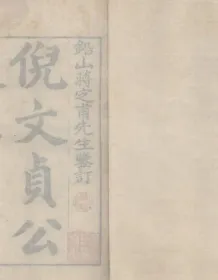 鉛山蔣定甫先生鑒訂
倪文貞公